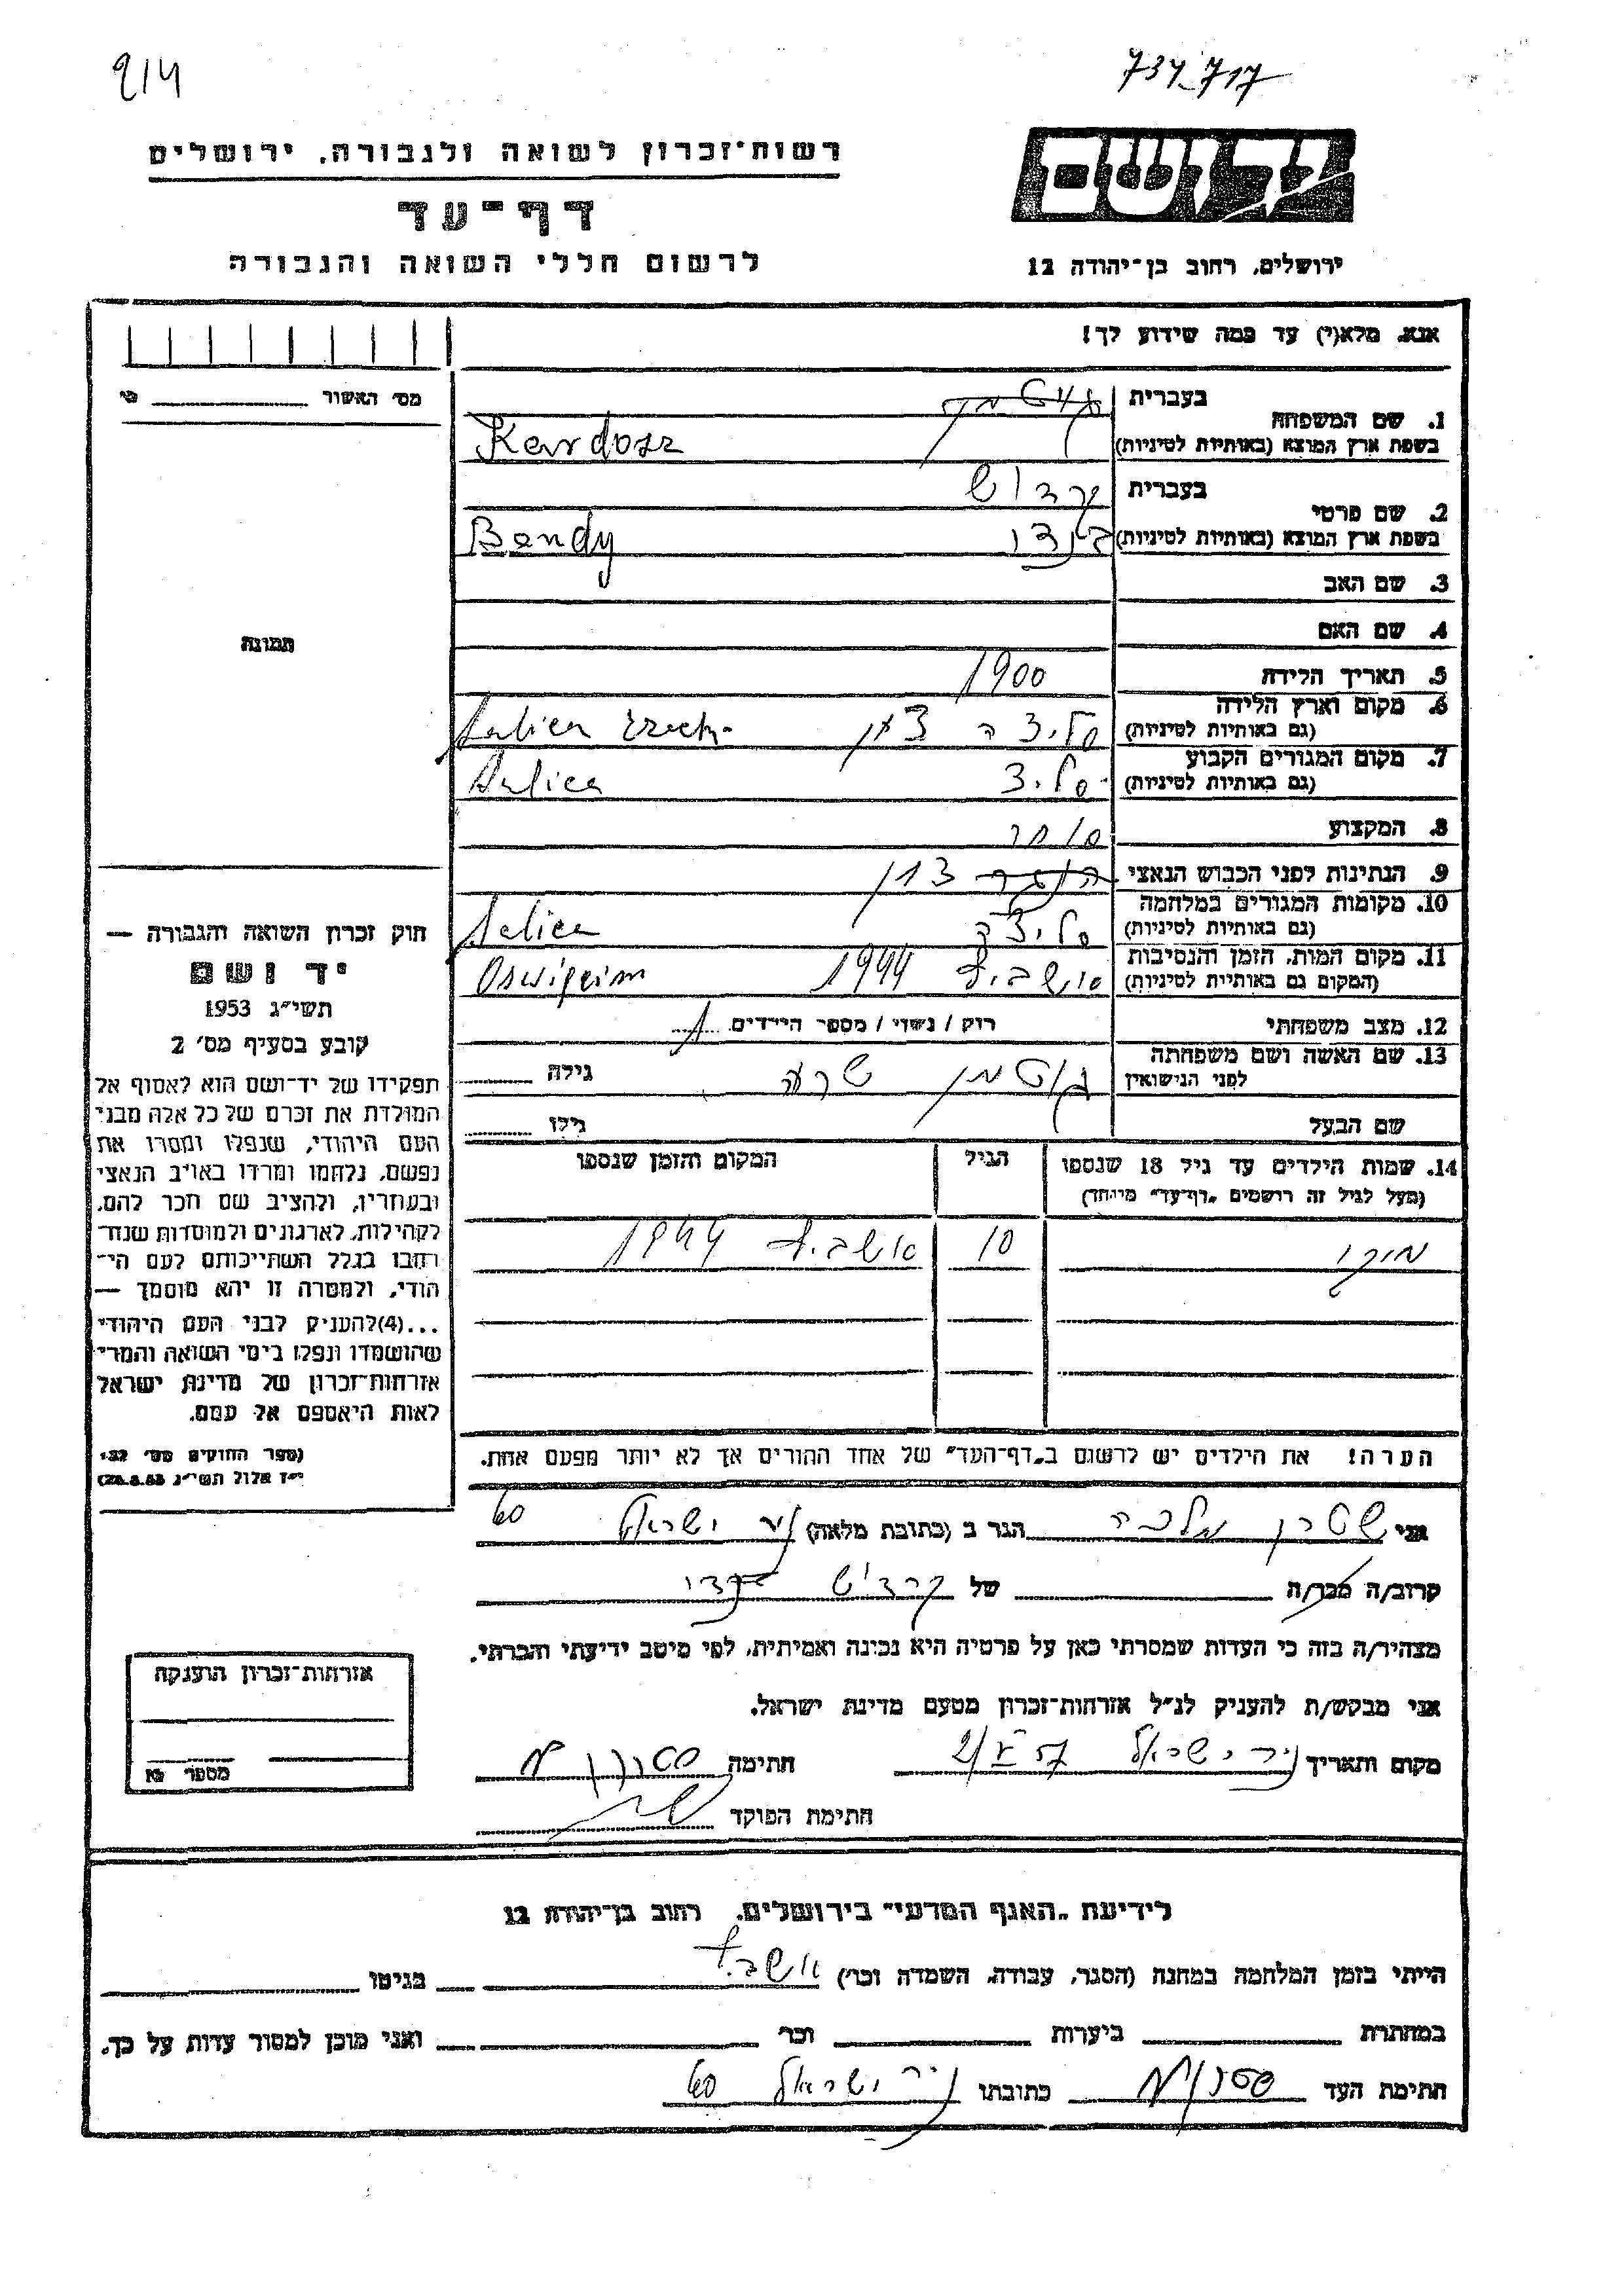 214
734_717
רשות־זכרון לשואה ולגבורה, ירושלים
דף־עד
לרשום חללי השואה והגבורה
יד ושם
ירושלים, רחוב בן־יהודה 12
אנא, מלא(י) עד כמה שידוע לך!
מס׳ האשור
1. שם המשפחה
בעברית
בשפת ארץ המוצא (באותיות לטיניות) Kardosz
2. שם פרטי
בעברית קרדוש
בשפת ארץ המוצא (באותיות לטיניות) בנדי Bandy
3. שם האב
4. שם האם
תמונה
5. תאריך הלידה 1900
6. מקום וארץ הלידה
(גם באותיות לטיניות)
7. מקום המגורים הקבוע
(גם באותיות לטיניות)
8. המקצוע סוחר
9. הנתינות לפני הכבוש הנאצי
10. מקומות המגורים במלחמה
(גם באותיות לטיניות)
11. מקום המות, הזמן והנסיבות
(המקום גם באותיות לטיניות) אושביץ 1944
12. מצב משפחתי רוק / נשוי / מספר הילדים 1
13. שם האשה ושם משפחתה
לפני הנישואין גוטמן שרה גילה
שם הבעל גילו
14. שמות הילדים עד גיל 18 שנספו
(מעל לגיל זה רושמים „דף־עד״ מיוחד)
הגיל
המקום והזמן שנספו
10 אושביץ 1944
הערה! את הילדים יש לרשום ב„דף־העד״ של אחד ההורים אך לא יותר מפעם אחת.
חוק זכרון השואה והגבורה —
יד ושם
תשי״ג 1953
קובע בסעיף מס׳ 2
תפקידו של יד־ושם הוא לאסוף אל
המולדת את זכרם של כל אלה מבני
העם היהודי, שנפלו ומסרו את
נפשם, נלחמו ומרדו באויב הנאצי
ובעוזריו, ולהציב שם וזכר להם,
לקהילות, לארגונים ולמוסדות שנח־
רבו בגלל השתייכותם לעם הי־
הודי, ולמטרה זו יהא מוסמך —
...(4)להעניק לבני העם היהודי
שהושמדו ונפלו בימי השואה והמרי
אזרחות־זכרון של מדינת ישראל
לאות היאספם אל עמם.
(ספר החוקים מס׳ 132
י״ז אלול תשי״ג 28.8.53)
אני שטרן מלכה הגר ב (כתובת מלאה) ניר ישראל 60
קרוב/ה מכר/ה של קרדוש בנדי
מצהיר/ה בזה כי העדות שמסרתי כאן על פרטיה היא נכונה ואמיתית, לפי מיטב ידיעתי והכרתי.
אני מבקש/ת להעניק לנ״ל אזרחות־זכרון מטעם מדינת ישראל.
מקום ותאריך ניר ישראל חתימה
חתימת הפוקד
אזרחות־זכרון הוענקה
מספר
לידיעת „האגף המדעי״ בירושלים, רחוב בן־יהודה 12
הייתי בזמן המלחמה במחנה (הסגר, עבודה, השמדה וכו׳) אושביץ בגיטו
במחתרת ביערות וכו׳ ואני מוכן למסור עדות על כך.
חתימת העד כתובתו ניר ישראל 60